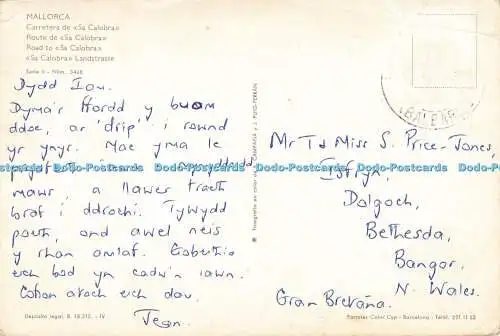 MALLORCA
Carretera de «Sa Calobra»
Route de «Sa Calobra»
Road to «Sa Calobra»
«Sa Calobra» Landstrasse
Serie II - Núm. 3448
Dydd Iau.
Dyma'r ffordd y buom
ddoe, ar 'drip' i rownd
yr ynys. Mae yma le
mawr, a llawer traeth
braf i ddrochi. Tywydd
poeth, ond awel neis
y rhan amlaf. Gobeithio
eich bod yn cadw'n iawn.
Cofion atoch eich dau,
Jean.
Depósito legal, B. 18.312 - IV
Fotografía en color de A. CAMPAÑÁ y J. PUIG-FERRÁN
BALEARES
Mr T & Miss S. Price-Jones,
Dolgoch,
Bethesda,
Bangor,
N. Wales.
Gran Bretaña.
Postales Color Cap - Barcelona - Teléf. 251 11 53
Dodo-Postcards Dodo-Postcards Dodo-Postcards Dodo-Postcards Dodo-Postcards